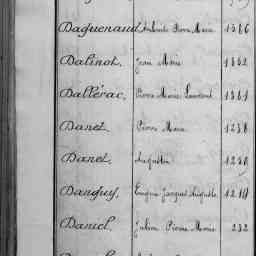 Daguenaud, Pierre Marie 1386
Dalinot, Jean Marie 1332
Dallérac, Pierre Marie Laurent 1361
Danet, Pierre Marie 1238
Danet, Augustin 1230
Danguy, Eugène Jacques Auguste 1210
Daniel, Julien Pierre Marie 232